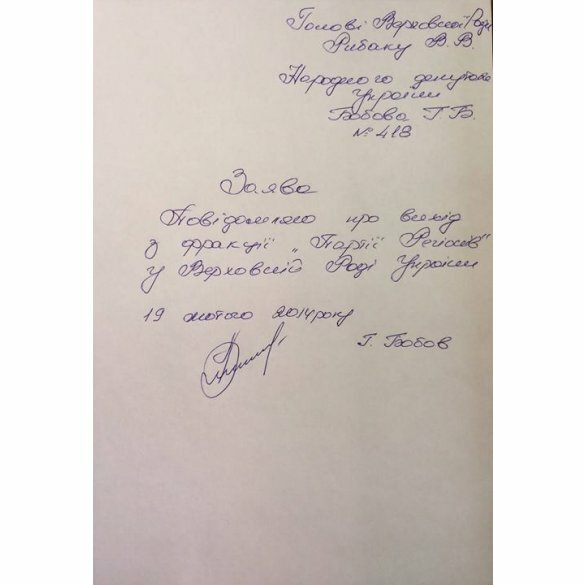 Голові Верховної Ради
Рибаку В.В.
Народного депутата
України
Бобова Г.Б.
№ 418
Заява
Повідомляю про вихід
з фракції „Партії Регіонів"
у Верховній Раді України
19 лютого 2014 року
Г. Бобов